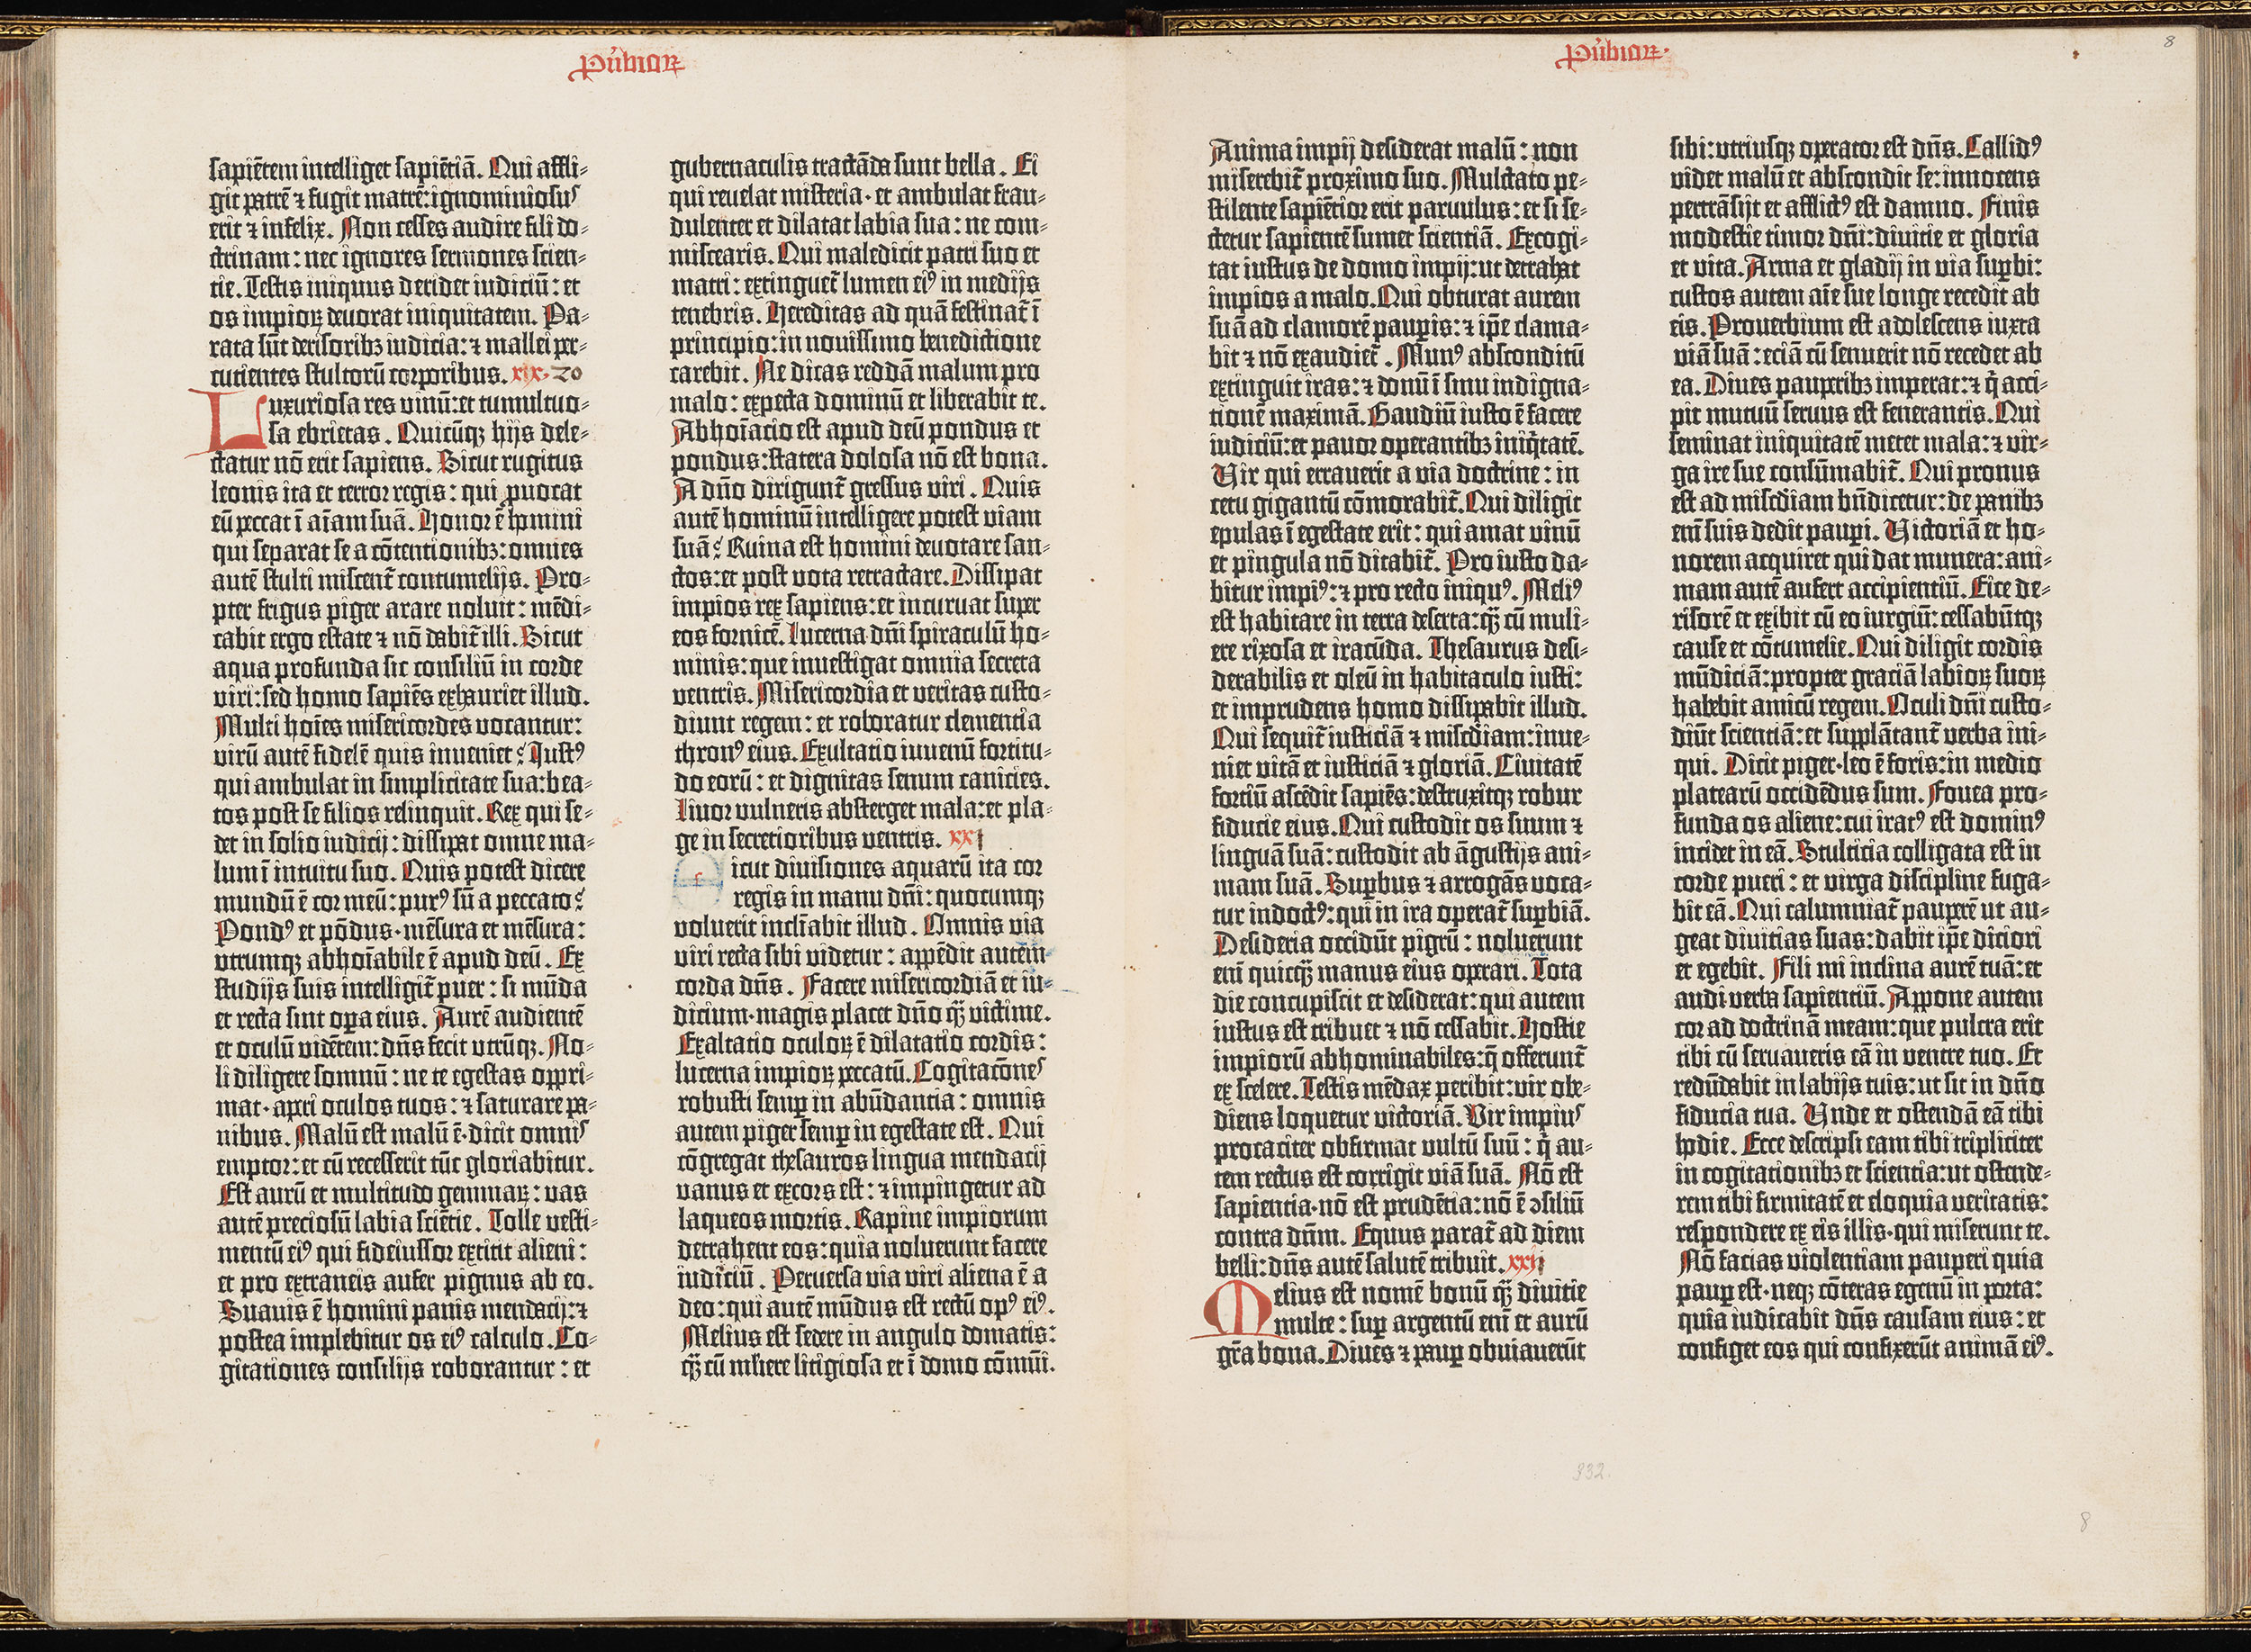 Pũbiorꝝ
sapiẽtem intelliget sapiẽtiã. Qui affli-
git patrẽ ⁊ fugit matrẽ: ignominiosus
erit ⁊ infelix. Non cesses audire fili do-
ctrinam: nec ignores sermones scien-
tie. Testis iniquus deridet iudiciũ: et
os impioꝝ deuorat iniquitatem. Pa-
rata sũt derisoribꝫ iudicia: ⁊ mallei per-
cutientes stultorũ corporibus. xix. 20
Luxuriosa res vinũ: et tumultuo-
sa ebrietas. Quicũqꝫ hijs dele-
ctatur nõ erit sapiens. Sicut rugitus
leonis ita et terror regis: qui ꝓuocat
eũ peccat ĩ aĩam suã. Honor ẽ homini
qui separat se a cõtentionibꝫ: omnes
autẽ stulti miscent᷑ contumelijs. Pro-
pter frigus piger arare noluit: mẽdi-
cabit ergo estate ⁊ nõ dabit᷑ illi. Sicut
aqua profunda sic consiliũ in corde
viri: sed homo sapiẽs exhauriet illud.
Multi hoĩes misericordes vocantur:
virũ autẽ fidelẽ quis inueniet? Iustꝰ
qui ambulat in simplicitate sua: bea-
tos post se filios relinquit. Rex qui se-
det in solio iudicij: dissipat omne ma-
lum ĩ intuitu suo. Quis potest dicere
mundũ ẽ cor meũ: purꝰ sũ a peccato?
Pondꝰ et põdus · mẽsura et mẽsura:
vtrumqꝫ abhoĩabile ẽ apud deũ. Ex
studijs suis intelligit᷑ puer: si mũda
et recta sint oꝑa eius. Aurẽ audientẽ
et oculũ vidẽtem: dñs fecit vtrũqꝫ. No-
li diligere somnũ: ne te egestas oppri-
mat · aperi oculos tuos: ⁊ saturare pa-
nibus. Malũ est malũ ẽ · dicit omnis
emptor: et cũ recesserit tũc gloriabitur.
Est aurũ et multitudo gemmaꝝ: vas
autẽ preciosũ labia sciẽtie. Tolle vesti-
mentũ eiꝰ qui fideiussor extitit alieni:
et pro extraneis aufer pignus ab eo.
Suauis ẽ homini panis mendacij: ⁊
postea implebitur os eiꝰ calculo. Co-
gitationes consilijs roborantur: et
gubernaculis tractãda sunt bella. Ei
qui reuelat misteria · et ambulat frau-
dulenter et dilatat labia sua: ne com-
miscearis. Qui maledicit patri suo et
matri: extinguet᷑ lumen eiꝰ in medijs
tenebris. Hereditas ad quã festinat᷑ ĩ
principio: in nouissimo benedictione
carebit. Ne dicas reddã malum pro
malo: expecta dominũ et liberabit te.
Abhoĩacio est apud deũ pondus et
pondus: statera dolosa nõ est bona.
A dño dirigunt᷑ gressus viri. Quis
autẽ hominũ intelligere potest viam
suã? Ruina est homini deuotare san-
ctos: et post vota retractare. Dissipat
impios rex sapiens: et incuruat super
eos fornicẽ. Lucerna dñi spiraculũ ho-
minis: que inuestigat omnia secreta
ventris. Misericordia et veritas custo-
diunt regem: et roboratur clementia
thronꝰ eius. Exultatio iuuenũ fortitu-
do eorũ: et dignitas senum canicies.
Liuor vulneris absterget mala: et pla-
ge in secretioribus ventris. xxi
Sicut diuisiones aquarũ ita cor
regis in manu dñi: quocumqꝫ
voluerit inclĩabit illud. Omnis via
viri recta sibi videtur: appẽdit autem
corda dñs. Facere misericordiã et iu-
dicium · magis placet dño q̃ꝫ victime.
Exaltatio oculoꝝ ẽ dilatatio cordis:
lucerna impioꝝ peccatũ. Cogitacõnes
robusti semꝑ in abũdantia: omnis
autem piger semꝑ in egestate est. Qui
cõgregat thesauros lingua mendacij
vanus et excors est: ⁊ impingetur ad
laqueos mortis. Rapine impiorum
detrahent eos: quia noluerunt facere
iudiciũ. Peruersa via viri aliena ẽ a
deo: qui autẽ mũdus est rectũ opꝰ eiꝰ.
Melius est sedere in angulo domatis:
q̃ꝫ cũ mĩiere litigiosa et ĩ domo cõmũi.
Pũbiorꝝ.
8
Anima impij desiderat malũ: non
miserebit᷑ proximo suo. Mulctato pe-
stilente sapiẽtior erit paruulus: et si se-
ctetur sapientẽ sumet scientiã. Excogi-
tat iustus de domo impij: ut detrahat
impios a malo. Qui obturat aurem
suã ad clamorẽ pauꝑis: ⁊ ip̃e clama-
bit ⁊ nõ exaudiet᷑. Munꝰ absconditũ
extinguit iras: ⁊ donũ ĩ sinu indigna-
tionẽ maximã. Gaudiũ iusto ẽ facere
iudiciũ: et pauor operantibꝫ iniq̃tatẽ.
Vir qui errauerit a via doctrine: in
cetu gigantũ cõmorabit᷑. Qui diligit
epulas ĩ egestate erit: qui amat vinũ
et pingula nõ ditabit᷑. Pro iusto da-
bitur impiꝰ: ⁊ pro recto iniquꝰ. Meliꝰ
est habitare in terra deserta: q̃ꝫ cũ muli-
ere rixosa et iracũda. Thesaurus desi-
derabilis et oleũ in habitaculo iusti:
et imprudens homo dissipabit illud.
Qui sequit᷑ iusticiã ⁊ misc̃diam: inue-
niet vitã et iusticiã ⁊ gloriã. Ciuitatẽ
fortiũ ascẽdit sapiẽs: destruxitqꝫ robur
fiducie eius. Qui custodit os suum ⁊
linguã suã: custodit ab ãgustijs ani-
mam suã. Suꝑbus ⁊ arrogãs voca-
tur indoctꝰ: qui in ira operat᷑ suꝑbiã.
Desideria occidũt pigrũ: noluerunt
eni quicq̃ꝫ manus eius operari. Tota
die concupiscit et desiderat: qui autem
iustus est tribuet ⁊ nõ cessabit. Hostie
impiorũ abhominabiles: q̃ offerunt᷑
ex scelere. Testis mẽdax peribit: vir obe-
diens loquetur victoriã. Vir impius
procaciter obfirmat vultũ suũ: q̃ au-
tem rectus est corrigit viã suã. Nõ est
sapientia · nõ est prudẽtia: nõ ẽ ↄsiliũ
contra dñm. Equus parat᷑ ad diem
belli: dñs autẽ salutẽ tribuit. xxij
Melius est nomẽ bonũ q̃ꝫ diuitie
multe: suꝑ argentũ eni et aurũ
gr̃a bona. Diues ⁊ pauꝑ obuiauerũt
sibi: vtriusqꝫ operator est dñs. Callidꝰ
videt malũ et abscondit se: innocens
pertrãsijt et afflictꝰ est damno. Finis
modestie timor dñi: diuicie et gloria
et vita. Arma et gladij in via suꝑbi:
custos autem aĩe sue longe recedit ab
eis. Prouerbium est adolescens iuxta
viã suã: eciã cũ senuerit nõ recedet ab
ea. Diues pauperibꝫ imperat: ⁊ q̃ acci-
pit mutuũ seruus est fenerantis. Qui
seminat iniquitatẽ metet mala: ⁊ vir-
ga ire sue consũmabit᷑. Qui pronus
est ad misc̃diam bñdicetur: de panibꝫ
eni suis dedit pauꝑi. Victoriã et ho-
norem acquiret qui dat munera: ani-
mam autẽ aufert accipientiũ. Eice de-
risorẽ et exibit cũ eo iurgiũ: cessabũtqꝫ
cause et cõtumelie. Qui diligit cordis
mũdiciã: propter graciã labioꝝ suoꝝ
habebit amicũ regem. Oculi dñi custo-
diũt scientiã: et supplãtant᷑ verba ini-
qui. Dicit piger · leo ẽ foris: in medio
platearũ occidẽdus sum. Fouea pro-
funda os aliene: cui iratꝰ est dominꝰ
incidet in eã. Stulticia colligata est in
corde pueri: et virga discipline fuga-
bit eã. Qui calumniat᷑ pauperẽ ut au-
geat diuitias suas: dabit ip̃e diciori
et egebit. Fili mi inclina aurẽ tuã: et
audi verba sapienciũ. Appone autem
cor ad doctrinã meam: que pulcra erit
tibi cũ seruaueris eã in ventre tuo. Et
redũdabit in labijs tuis: ut sit in dño
fiducia tua. Unde et ostendã eã tibi
hodie. Ecce descripsi eam tibi tripliciter
in cogitationibꝫ et scientia: ut ostende-
rem tibi firmitatẽ et eloquia veritatis:
respondere ex eis illis · qui miserunt te.
Nõ facias violentiam pauperi quia
pauꝑ est · neqꝫ cõteras egenũ in porta:
quia iudicabit dñs causam eius: et
configet eos qui confixerũt animã eiꝰ.
332.
8